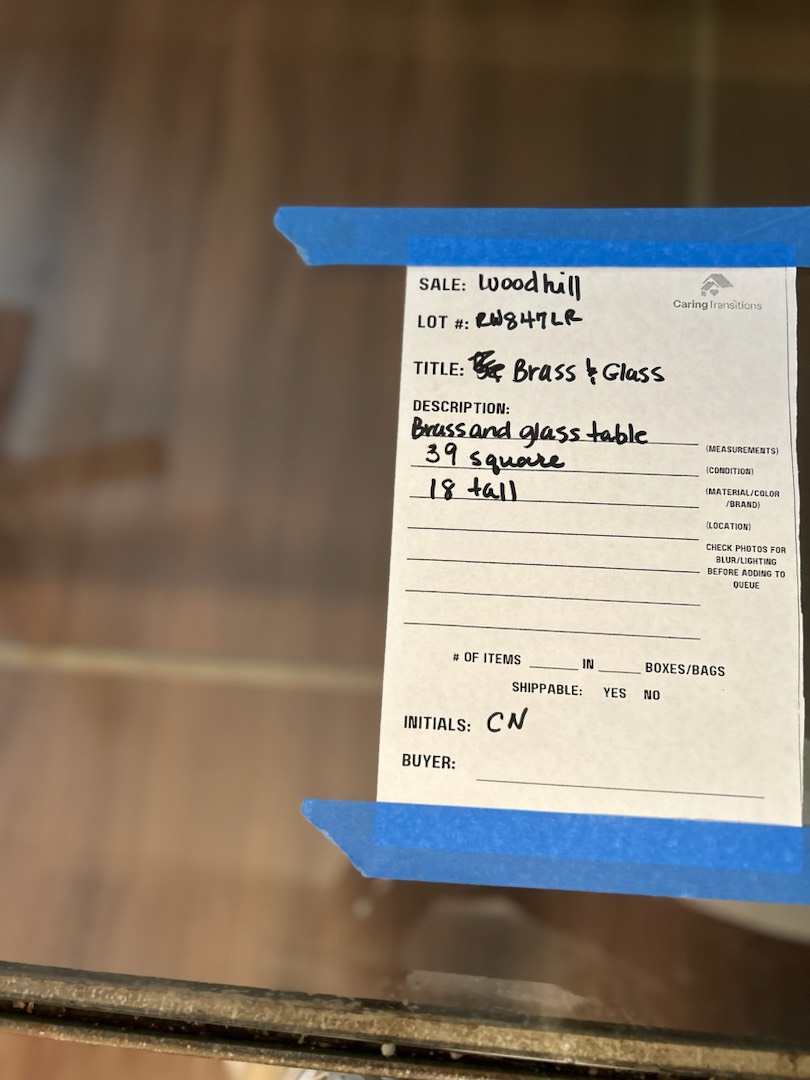 SALE: Woodhill
CaringTransitions
LOT #: RW847LR
TITLE: Brass & Glass
DESCRIPTION:
Brass and glass table
(MEASUREMENTS)
39 square
(CONDITION)
18 tall
(MATERIAL/COLOR
/BRAND)
(LOCATION)
CHECK PHOTOS FOR
BLUR/LIGHTING
BEFORE ADDING TO
QUEUE
# OF ITEMS ______ IN _____ BOXES/BAGS
SHIPPABLE: YES NO
INITIALS: CN
BUYER: